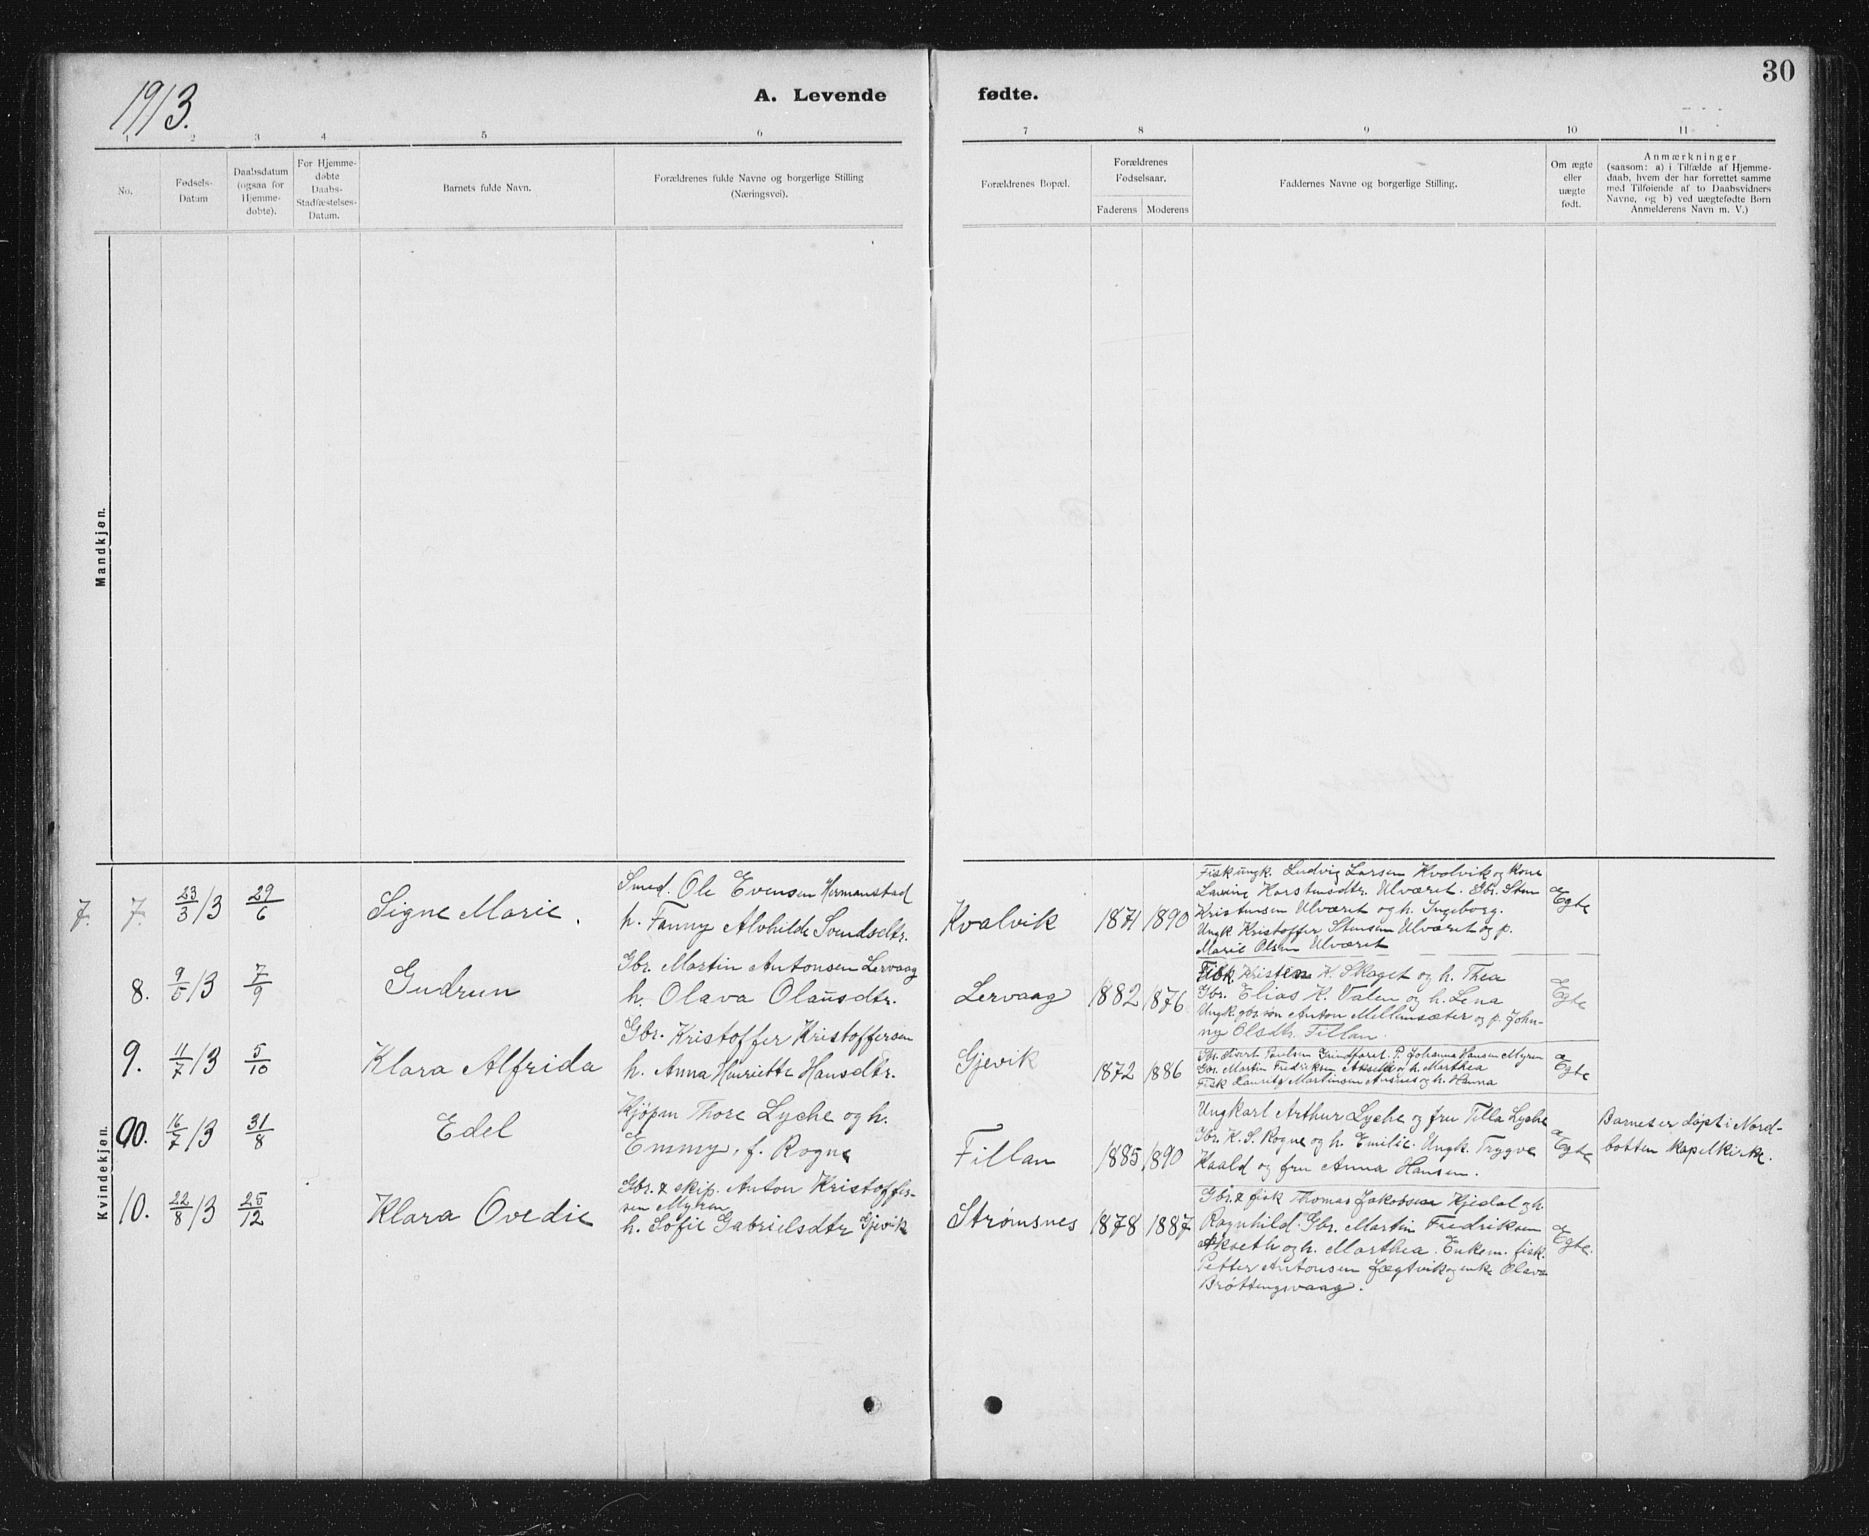 1913.
A. Levende fødte.
30
1 2 3 4 5 6 7 8 9 10 11
No.
Fødsels-
Datum
Daabsdatum
(ogsaa for
Hjemme-
døbte).
For Hjemme-
døbte
Daabs-
Stadfæstelses-
Datum.
Barnets fulde Navn.
Forældrenes fulde Navne og borgerlige Stilling
(Næringsvei).
Forældrenes Bopæl.
Forældrenes
Fødselsaar.
Faderens Moderens
Faddernes Navne og borgerlige Stilling.
Om ægte
eller
uægte
født.
Anmærkninger
(saasom: a) i Tilfælde af Hjemme-
daab, hvem der har forrettet samme
med Tilføiende af to Daabsvidners
Navne, og b) ved uægtefødte Børn
Anmelderens Navn m. V.)
Mandkjøn.
Kvindekjøn.
7. 7. 23/3 13 29/6
Signe Marie.
Smed. Ole Evensen Hermanstad
h. Fanny Alvhilde Svendsdtr.
Kvalvik
1871 1890
Fisk ungk. Ludvig Larsen Kvalvik og kone
Laving Karstensdtr. Ulværet. Gbr. Sten
Kristensen Ulværet og h. Ingeborg.
Ungk Kristoffer Stensen Ulværet og p.
Marie Olsen Ulværet
Ægte
8. 9/5 13 7/9
Gudrun
Gbr. Martin Antonsen Lervaag
h. Olava Olausdtr.
Lervaag
1882 1876
Fisk. Kristen K. Skaget og h. Thea
Gbr. Elias K. Valen og h. Lena
Ungk. gbr. søn Anton Mellemsæter og p. John-
ny Olsdtr. Fillan.
Ægte
9. 11/7 13 5/10
Klara Alfrida
Gbr. Kristoffer Kristoffersen
h. Anna Henriette Hansdtr.
Gjevik
1872 1886
Gbr. Sivert Paulsen Grindfaret. P. Johanna Hansen Myren
Gbr. Martin Fredriksen Akseth og h. Marthea
Fisk Lauritz Martinsen Ansnes og h. Hanna
Ægte
10. 16/7 13 31/8
Edel
Kjøpm Thore Lyche og h.
Emmy, f. Rogne
Fillan
1885 1890
Ungkarl Arthur Lyche og fru Tilla Lyche
Gbr. K. S. Rogne og h. Emilie. Ungk. Trygve
Kaald og fru Anna Hansen.
Ægte
Barnet er døpt i Nord-
botten kapelkirke.
10. 22/8 13 25/12
Klara Ovedie
Gbr. & skip. Anton Kristoffer-
sen Myren
h. Sofie Gabrielsdtr Gjevik
Strømsnes
1878 1887
Gbr. & fisk Thomas Jakobsen Hjedal og h.
Ragnhild. Gbr. Martin Fredriksen
Akseth og h. Marthea. Enkem. fisk.
Petter Antonsen Jægtvik og enke Olava
Brøttingsvaag.
Ægte.